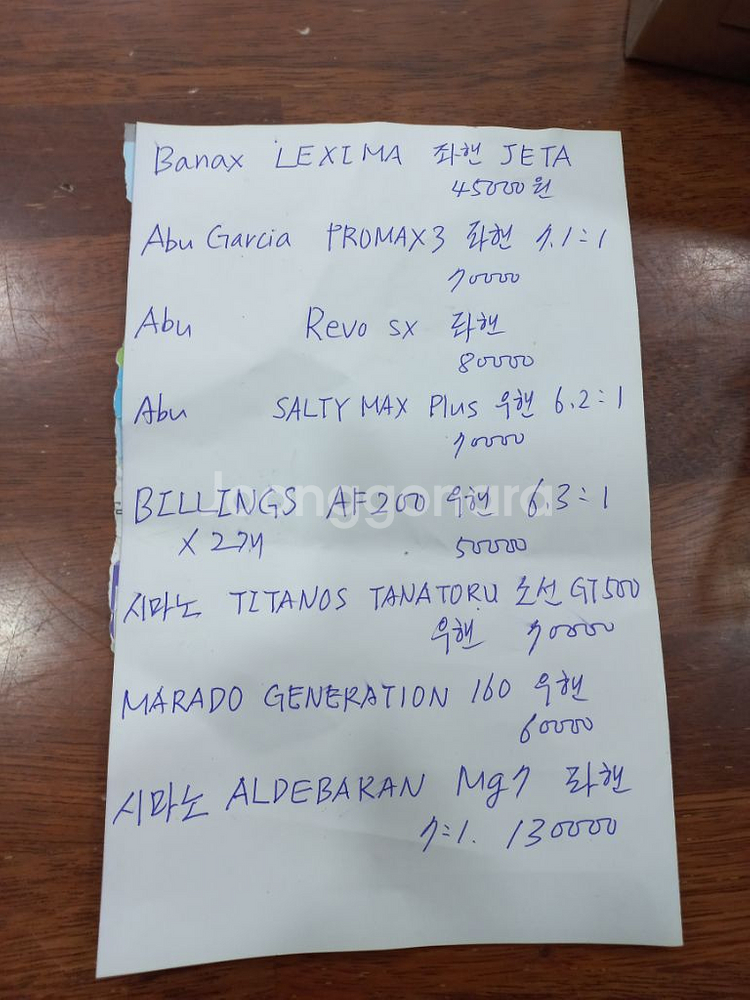 Banax LEXIMA 좌핸 JETA
45000원
Abu Garcia PROMAX3 좌핸 7.1:1
70000
Abu Revo SX 좌핸
80000
Abu SALTY MAX Plus 우핸 6.2:1
70000
BILLINGS AF200 우핸 6.3:1
X 2개 50000
시마노 TITANOS TANATORU 소선 GT500
우핸 70000
MARADO GENERATION 160 우핸
60000
시마노 ALDEBARAN Mg7 좌핸
7:1. 130000
joonggonara